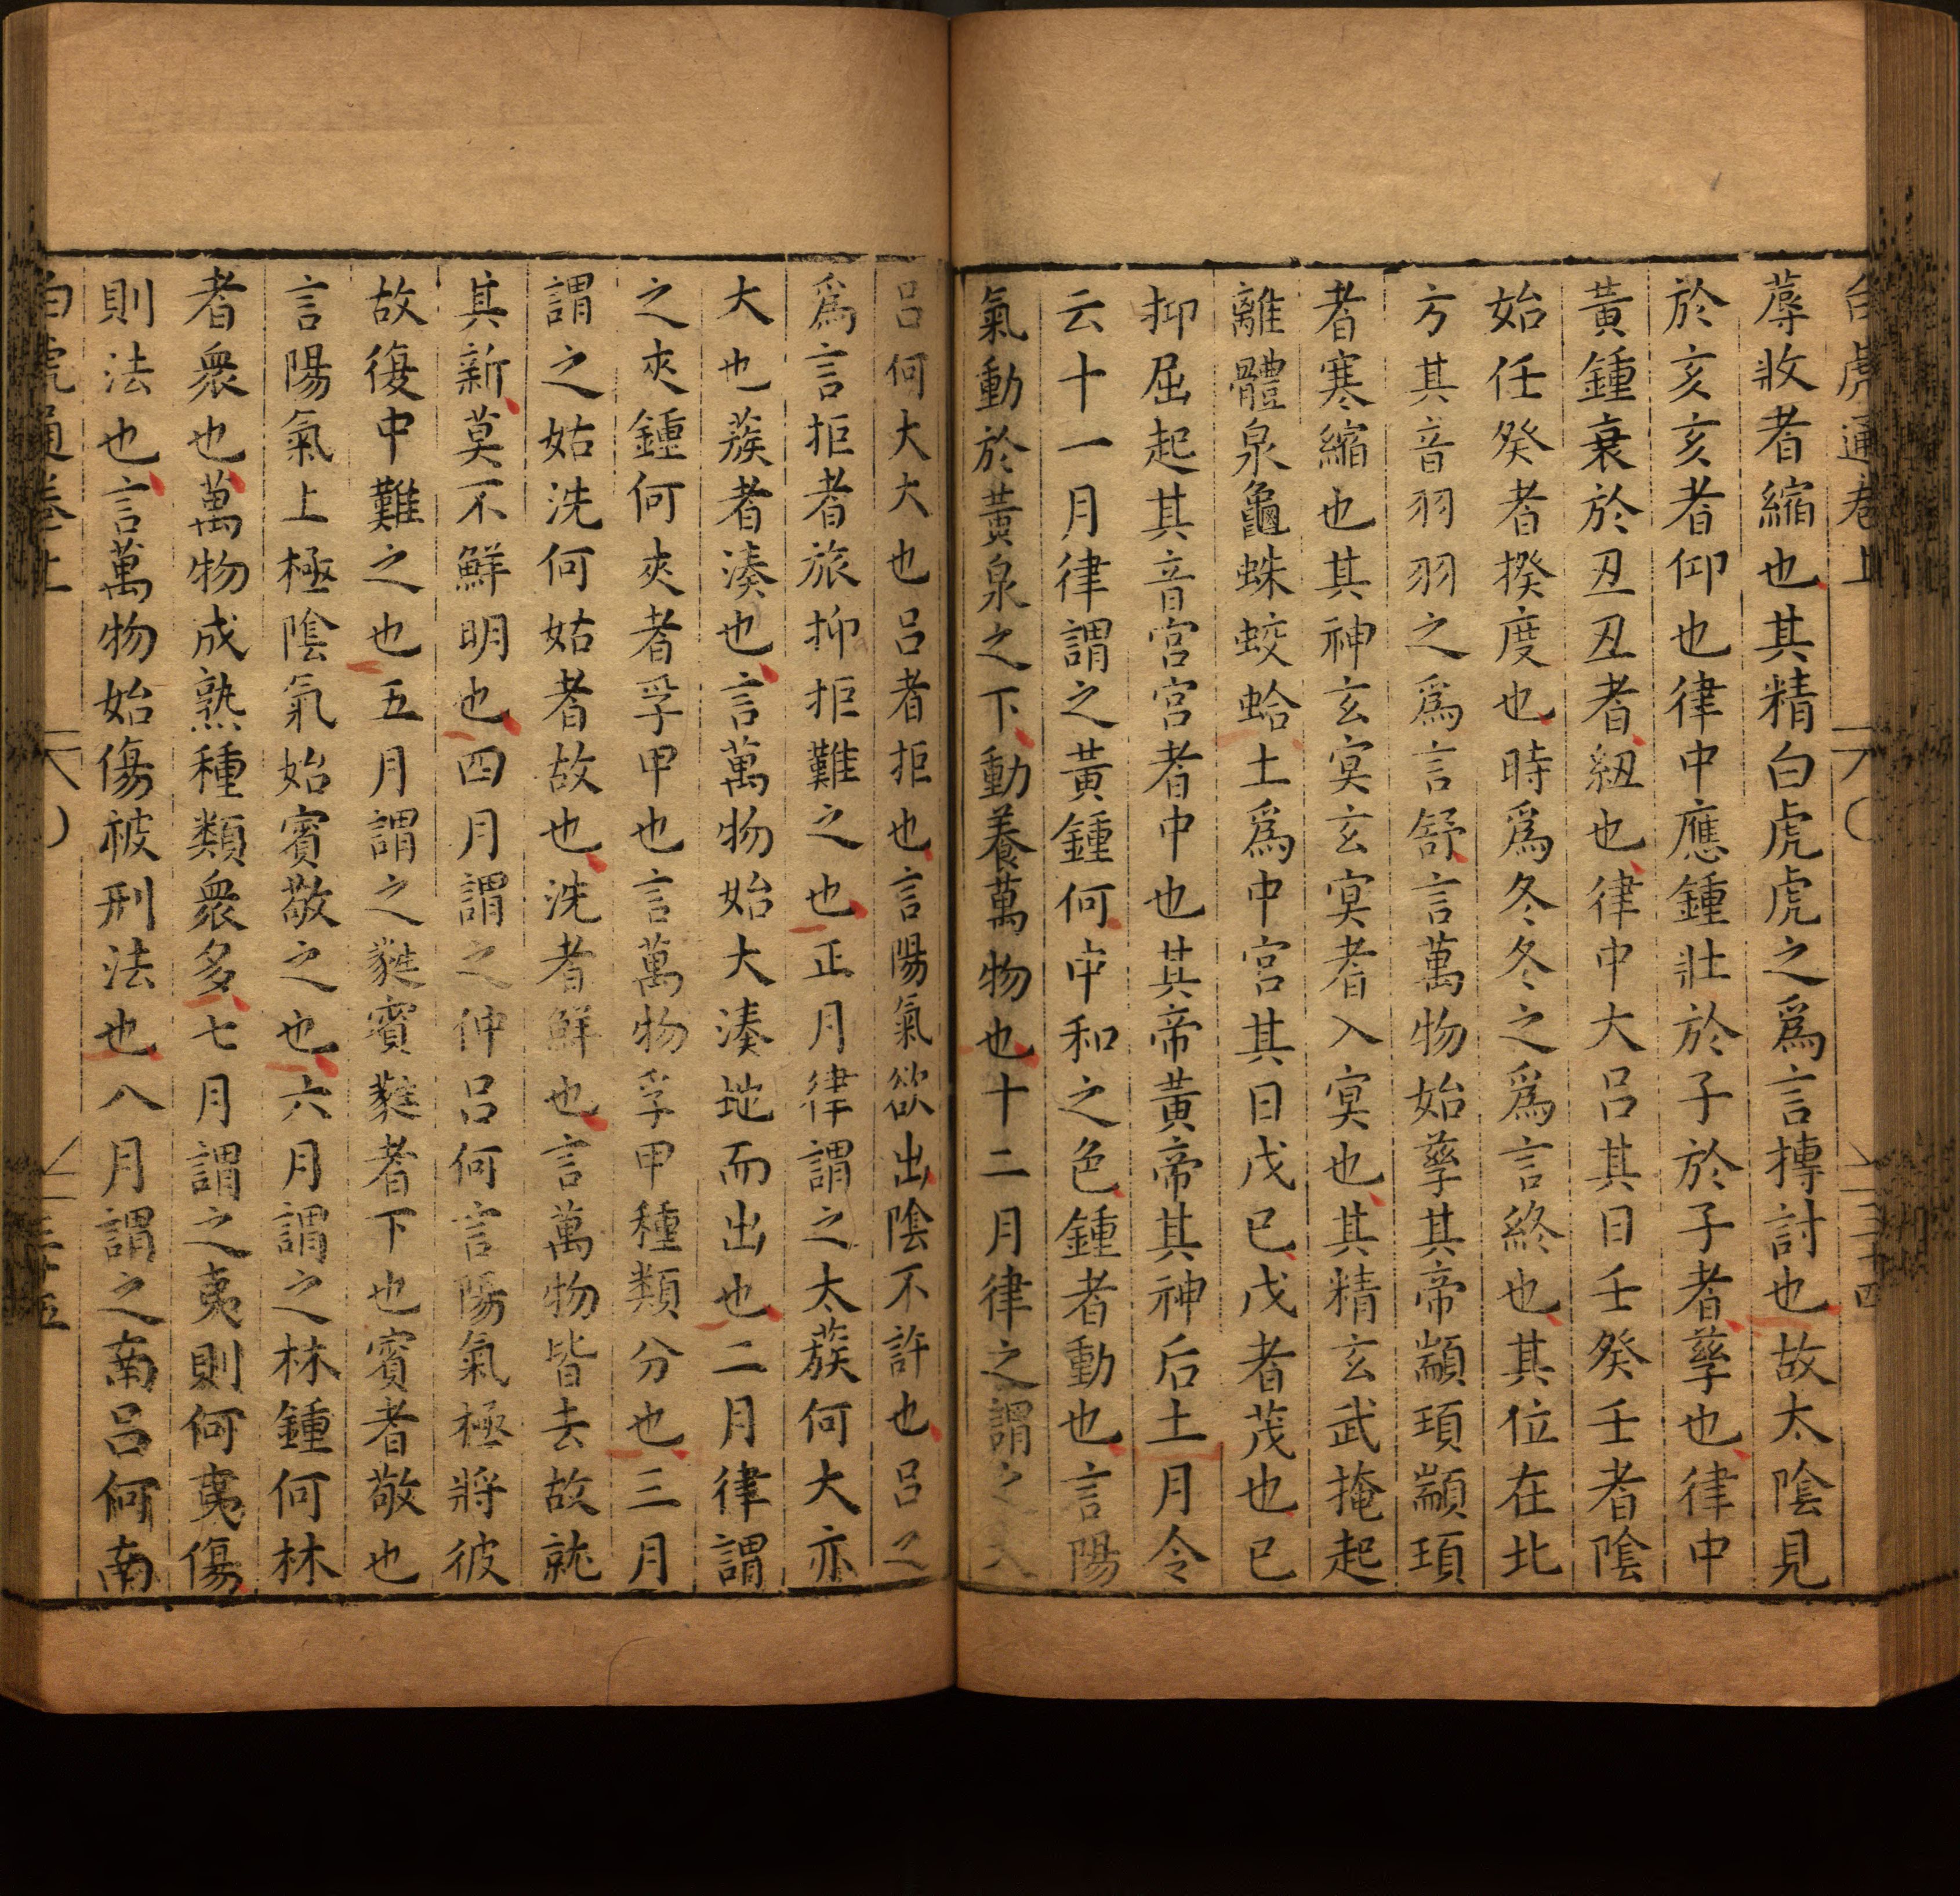 白虎通卷上 三十四
蓐收者縮也其精白虎虎之爲言摶討也故太陰見
於亥亥者仰也律中應鍾壯於子於子者孳也律中
黃鍾衰於丑丑者紐也律中大呂其日壬癸壬者陰
始任癸者揆度也時爲冬冬之爲言終也其位在北
方其音羽羽之爲言舒言萬物始孳其帝顓頊顓頊
者寒縮也其神玄冥玄冥者入冥也其精玄武掩起
離體泉龜蛛蛟蛤土爲中宮其日戊己戊者茂也己
抑屈起其音宮宮者中也其帝黃帝其神后土月令
云十一月律謂之黃鍾何中和之色鍾者動也言陽
氣動於黃泉之下動養萬物也十二月律之謂之大
呂何大大也呂者拒也言陽氣欲出陰不許也呂之
爲言拒者旅抑拒難之也正月律謂之太蔟何大亦
大也蔟者湊也言萬物始大湊地而出也二月律謂
之夾鍾何夾者孚甲也言萬物孚甲種類分也三月
謂之姑洗何姑者故也洗者鮮也言萬物皆去故就
其新莫不鮮明也四月謂之仲呂何言陽氣極將彼
故復中難之也五月謂之蕤賓蕤者下也賓者敬也
言陽氣上極陰氣始賓敬之也六月謂之林鍾何林
者衆也萬物成熟種類衆多七月謂之夷則何夷傷
則法也言萬物始傷被刑法也八月謂之南呂何南
白虎通卷上 三十五